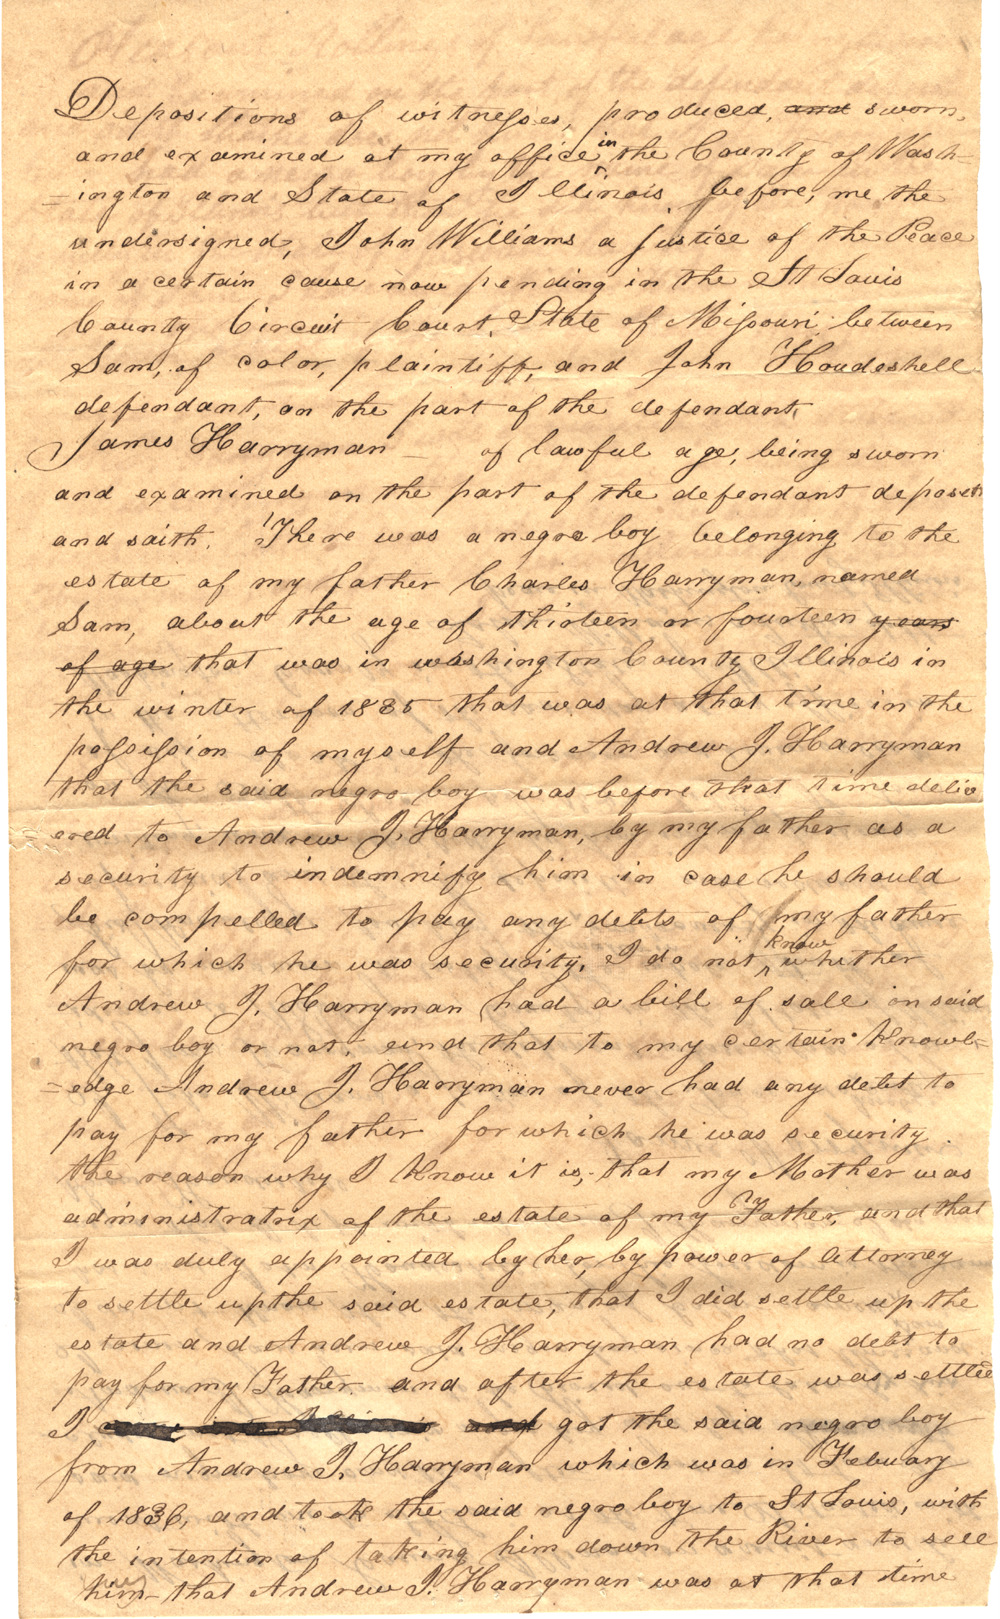 Depositions of witnesses, produced, and sworn,
and examined at my office in the County of Wash-
=ington and State of Illinois, before, me the
undersigned, John Williams a justice of the Peace
in a certain cause now pending in the St Louis
County Circuit Court, State of Missouri between
Sam, of color, plaintiff, and John Houdeshell
defendant, on the part of the defendant,
James Harryman — of lawful age, being sworn
and examined on the part of the defendant deposeth
and saith. There was a negro boy belonging to the
estate of my father Charles Harryman, named
Sam, about the age of thirteen or fourteen years
of age that was in washington County Illinois in
the winter of 1835 that was at that time in the
possission of myself and Andrew J. Harryman
that the said negro boy was before that time deliv
ered to Andrew J. Harryman, by my father as a
security to indemnify him in case he should
be compelled to pay any debts of my father
for which he was security. I do not know whither
Andrew J. Harryman had a bill of sall on said
negro boy or not, and that to my certain knowl=
=edge Andrew J. Harryman never had any debt to
pay for my father for which he was security.
the reason why I know it is, that my Mother was
administratrix of the estate of my Father, and that
I was duly appointed by her, by power of attorney
to settle up the said estate, that I did settle up the
estate and Andrew J. Harryman had no debt to
pay for my Father. and after the estate was settled
I and got the said negro boy
from Andrew J. Harryman which was in Febuary
of 1836, and took the said negro boy to St Louis, with
the intention of taking him down the River to sell
him — that Andrew J. Harryman was at that time